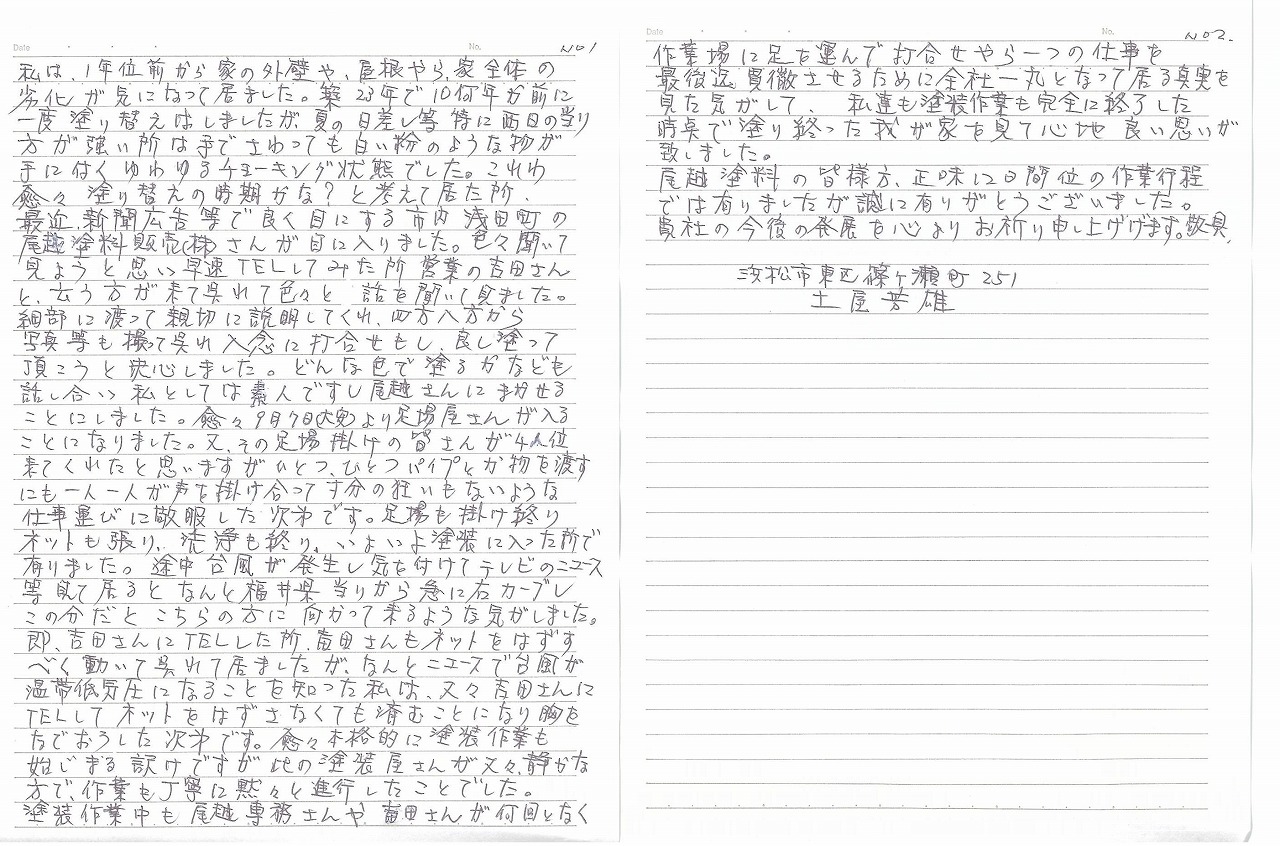 Date ・ ・ ・ No. NO1
私は、1年位前から家の外壁や、屋根やら、家全体の
劣化が気になって居ました。築23年で10何年か前に
一度塗り替えはしましたが、夏の日差し等特に西日の当り
方が強い所は手でさわっても白い粉のような物が
手に付くゆわゆるチョーキング状態でした。これわ
愈々塗り替えの時期かな?と考えて居た所、
最近、新聞広告等で良く目にする市内浅田町の
尾越塗料販売(株)さんが目に入りました。色々聞いて
見ようと思い早速TELしてみた所営業の吉田さん
と、云う方が来て呉れて色々と話を聞いて見ました。
細部に渡って親切に説明してくれ、四方八方から
写真等も撮って呉れ入念に打合せもし、良し塗って
頂こうと決心しました。どんな色で塗るかなども
話し合い私としては素人ですし尾越さんにまかせる
ことにしました。愈々9月7日(大安)より足場屋さんが入る
ことになりました。又、その足場掛けの皆さんが4人位
来てくれたと思いますがひとつ、ひとつパイプとか物を渡す
にも一人一人が声を掛け合って寸分の狂いもないような
仕事運びに敬服した次第です。足場も掛け終り
ネットも張り、洗浄も終り、いよいよ塗装に入った所で
有りました。途中台風が発生し気を付けてテレビのニュース
等見て居るとなんと福井県当りから急に右カーブし
この分だとこちらの方に向かって来るような気がしました。
即、吉田さんにTELした所、富田さんもネットをはずす
べく動いて呉れて居ましたが、なんとニュースで台風が
温帯低気圧になることを知った私は、又々吉田さんに
TELしてネットをはずさなくても済むことになり胸を
なでおろした次第です。愈々本格的に塗装作業も
始じまる訳けですが此の塗装屋さんが又々、静かな
方で、作業も丁寧に黙々と進行したことでした。
塗装作業中も尾越専務さんや、富田さんが何回となく
Date ・ ・ ・ No. NO2.
作業場に足を運んで打合せやら一つの仕事を
最後迄貫徹させるために全社一丸となって居る真実を
見た気がして、私達も塗装作業も完全に終了した
時点で塗り終った我が家を見て心地良い思いが
致しました。
尾越塗料の皆様方、正味12日間位の作業行程
では有りましたが誠に有りがとうございました。
貴社の今後の発展を心よりお祈り申し上げげます。敬具、
浜松市東区篠ヶ瀬町251
土屋芳雄